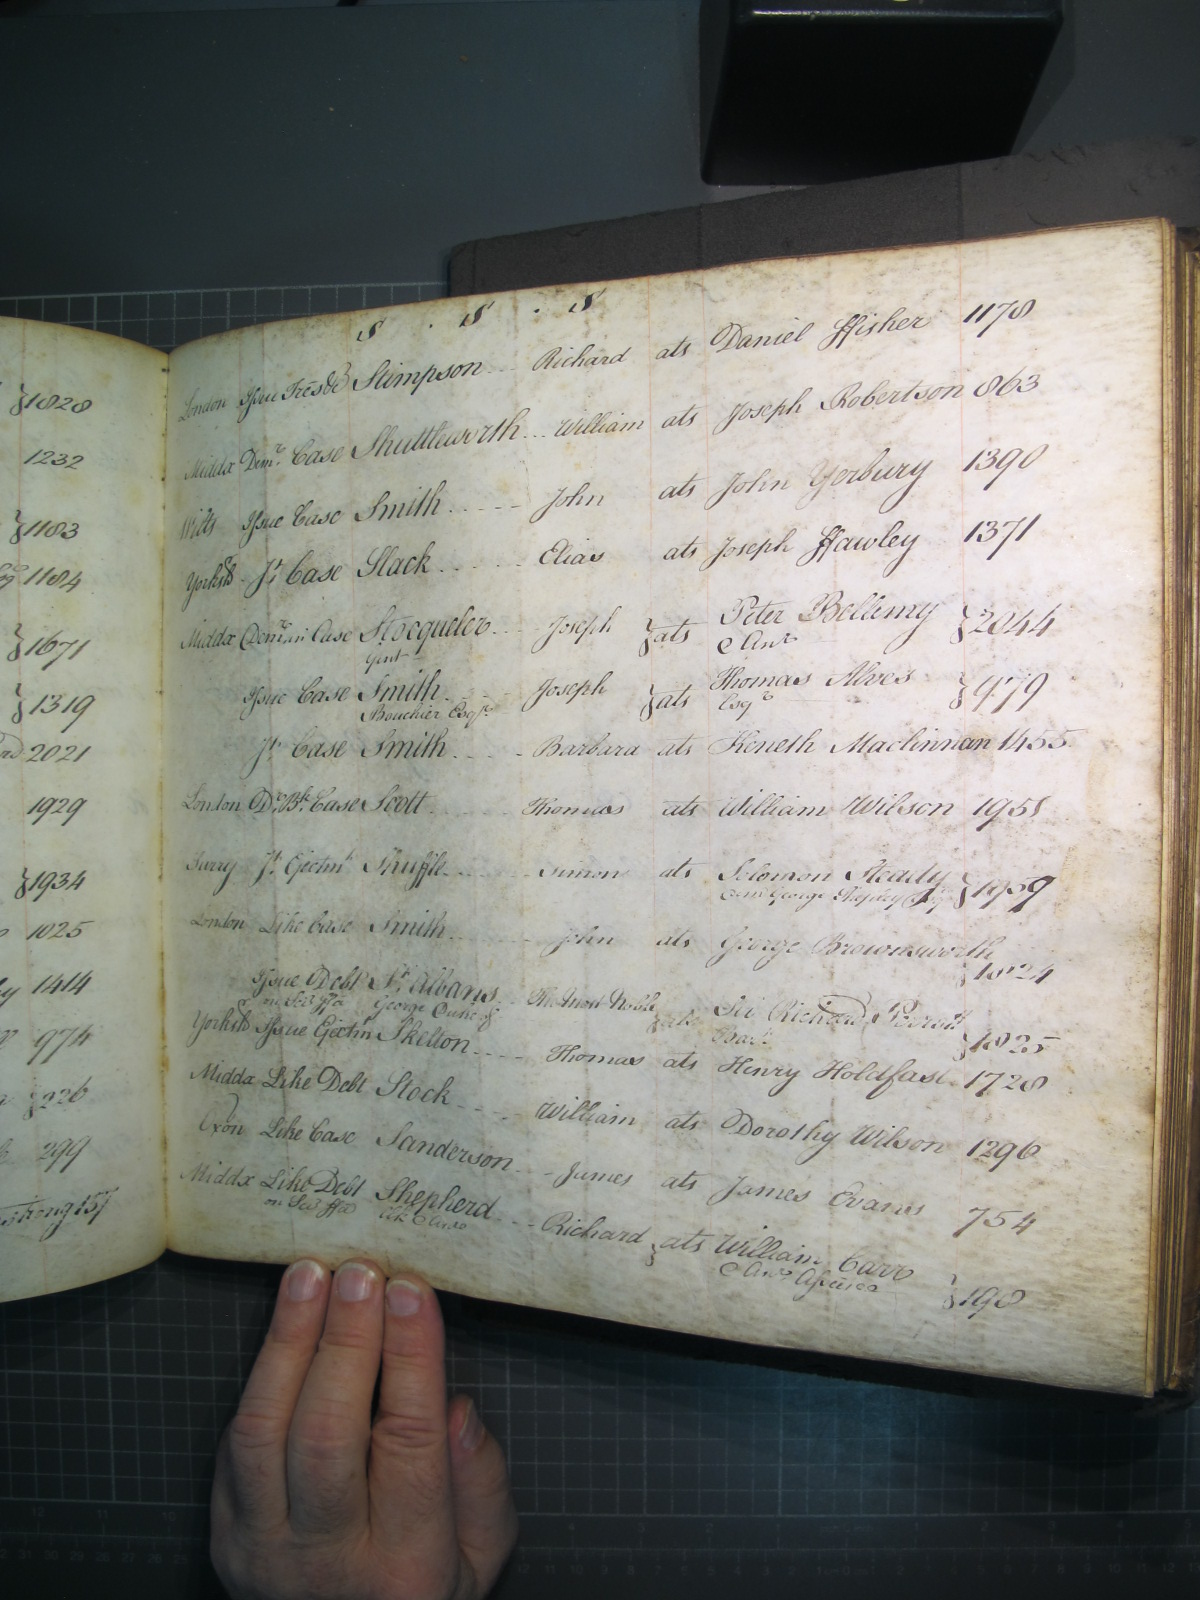 }1828
1232
}1183
1184
}1671
}1319
2021
1929
}1934
1025
1414
974
}226
299
157
S . S . S
London Issue Tresps Stimpson Richard ats Daniel Ffisher 1178
Middx Demr. Case Shuttleworth William ats Joseph Robertson 863
Wilts Issue Case Smith John ats John Yerbury 1390
Yorksh Jt. Case Slack Elias ats Joseph Ffawley 1371
Middx Demr. in Case Stocqueler Joseph } ats Peter Bellimy } 2044
Gent & Anr
Issue Case Smith Joseph } ats Thomas Alves } 979
Bouchier Esqr. Esqr
Jt. Case Smith Barbara ats Keneth Maclinnan 1455
London Case Scott Thomas ats William Wilson 1951
Surry Jt. Ejectmt Shuffle Simon ats Solomon Steady } 1959
Dem George Esq
London Like Case Smith John ats George Brownsworth
} 1824
Issue Debt St. Albans The Most Noble } ats Sir Richard
on Sci ffa George Duke of Bart } 1825
Yorksh Issue Ejectmt Skelton Thomas ats Henry Holdfast 1728
Middx Like Debt Stock William ats Dorothy Wilson 1296
Oxon Like Case Sanderson James ats James Evans 754
Middx Like Debt Shepherd Richard } ats William Carr
on Sci ffa & Anr } 190